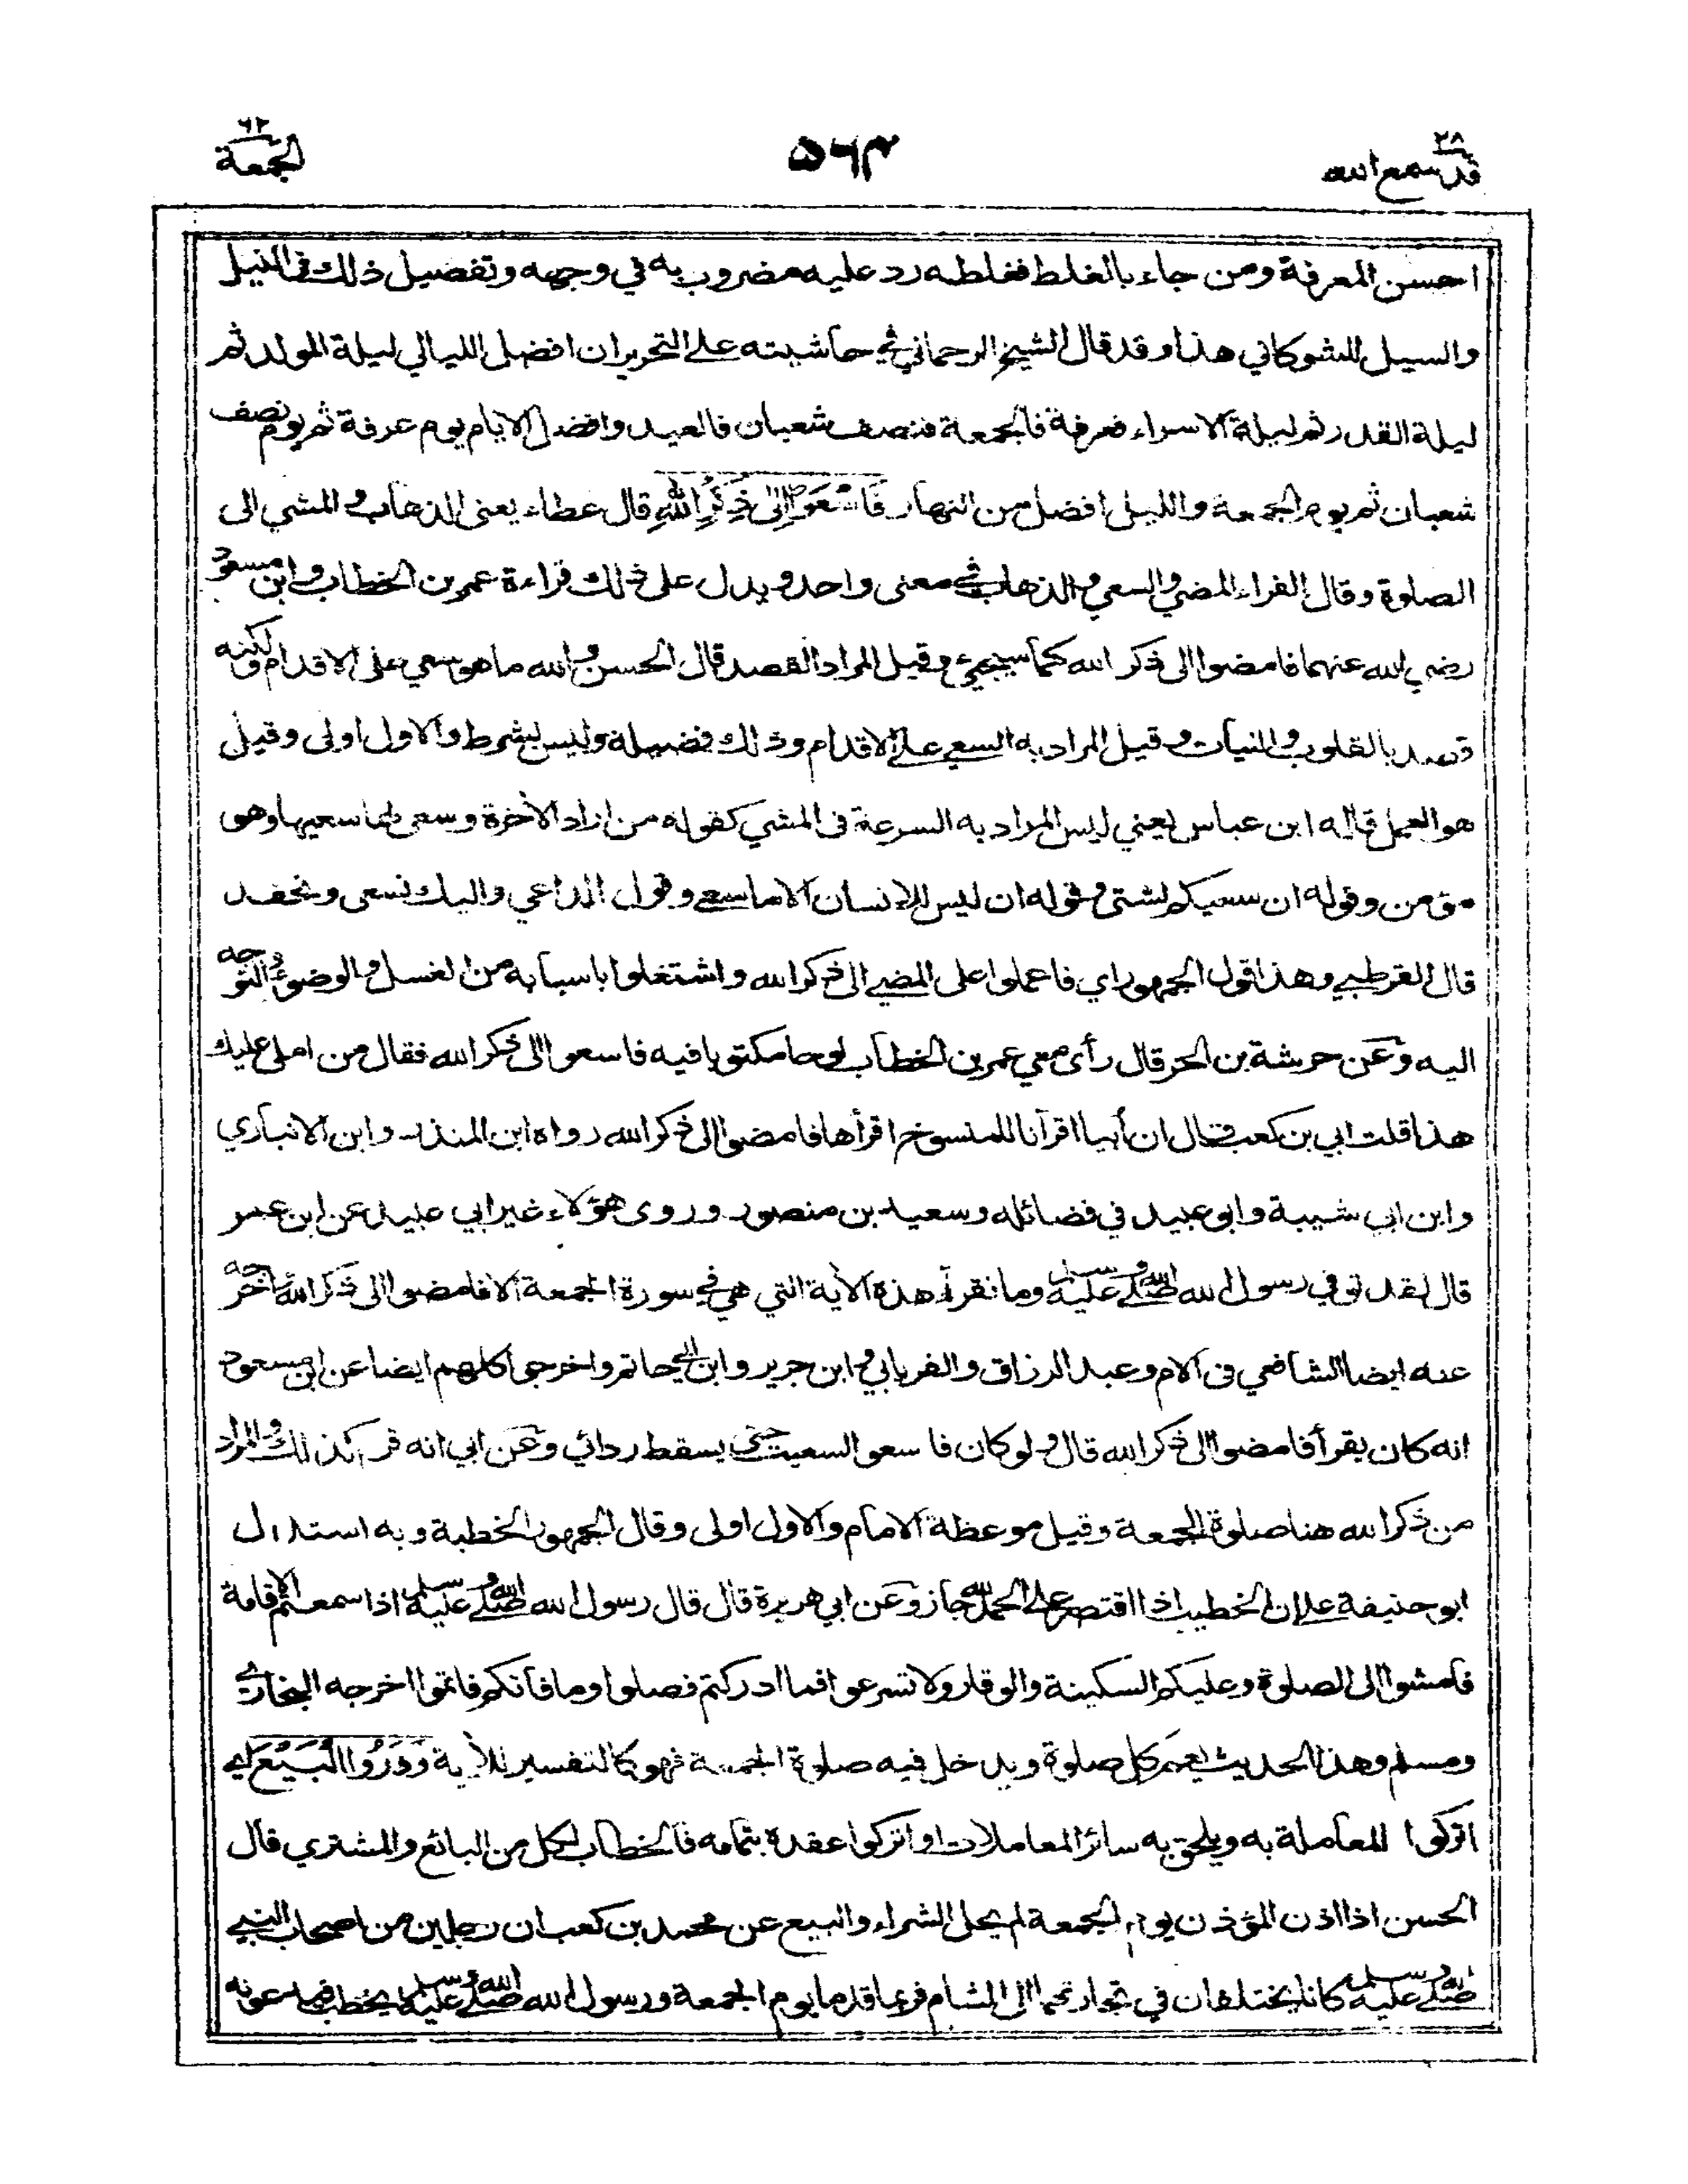 ٢٨
قد سمع الله
٥٦٣
٦٢
الجمعة
احسن المعرفة ومن جاء بالغلط فغلطه رد عليه مضروب به في وجهه وتفصيل ذلك في النيل
والسيل للشوكاني هذا وقد قال الشيخ الرحماني في حاشيته على التحرير ان افضل الليالي ليلة المولد ثم
ليلة القدر ثم ليلة الاسراء فعرفة فالجمعة فنصف شعبان فالعيد وافضل الايام يوم عرفة ثم يوم نصف
شعبان ثم يوم الجمعة والليل افضل من النهار فَاسْعَوْا إِلَى ذِكْرِ اللهِ قال عطاء يعني الذهاب والمشي الى
الصلوة وقال الفراء المضي والسعي والذهاب في معنى واحد ويدل على ذلك قراءة عمر بن الخطاب وابن مسعود
رضي الله عنهما فامضوا الى ذكر الله كما سيجيء وقيل المراد القصد قال الحسن والله ما هو سعي على الاقدام ولكنه
قصد بالقلوب والنيات وقيل المراد به السعي على الاقدام وذلك فضيلة وليس بشرط والاول اولى وقيل
هو العمل قاله ابن عباس يعني ليس المراد به السرعة في المشي كقوله من اراد الآخرة وسعى لها سعيها وهو
مؤمن وقوله ان سعيكم لشتى وقوله ان ليس للانسان الا ما سعى وقول الداعي واليك نسعى ونحفد
قال القرطبي وهذا قول الجمهور اي فاعملوا على المضي الى ذكر الله واشتغلوا باسبابه من الغسل والوضوء والتوجه
اليه وعن خرشة بن الحر قال رأى معي عمر بن الخطاب لوحا مكتوبا فيه فاسعوا الى ذكر الله فقال من املى عليك
هذا قلت ابي بن كعب قال ان أبيا اقرأنا للمنسوخ اقرأها فامضوا الى ذكر الله رواه ابن المنذر وابن الانباري
وابن ابي شيبة وابو عبيد في فضائله وسعيد بن منصور وروى هؤلاء غير ابي عبيد عن ابن عمر
قال لقد توفي رسول الله صلى الله عليه وسلم وما نقرأ هذه الآية التي هي في سورة الجمعة الا فامضوا الى ذكر الله اخرجه
عنه ايضا الشافعي في الام وعبد الرزاق والفريابي وابن جرير وابن ابي حاتم واخرجوا كلهم ايضا عن ابن مسعود
انه كان يقرأ فامضوا الى ذكر الله قال ولو كان فاسعوا لسعيت حتى يسقط ردائي وعن ابي انه قرأ كذلك والمراد
من ذكر الله هنا صلوة الجمعة وقيل موعظة الامام والاول اولى وقال الجمهور الخطبة وبه استدل
ابو حنيفة على ان الخطيب اذا اقتصر على الحمد لله جاز وعن ابي هريرة قال قال رسول الله صلى الله عليه وسلم اذا سمعتم الاقامة
فامشوا الى الصلوة وعليكم السكينة والوقار ولا تسرعوا فما ادركتم فصلوا وما فاتكم فاتموا اخرجه البخاري
ومسلم وهذا الحديث يعم كل صلوة ويدخل فيه صلوة الجمعة فهو كالتفسير للآية وَذَرُوا الْبَيْعَ اي
اتركوا المعاملة به ويلحق به سائر المعاملات او اتركوا عقده بتمامه فالخطاب لكل من البائع والمشتري قال
الحسن اذا اذن المؤذن يوم الجمعة لم يحل الشراء والبيع عن محمد بن كعب ان رجلين من اصحاب النبي
صلى الله عليه وسلم كانا يختلفان في تجارتهما الى الشام فربما قدما يوم الجمعة ورسول الله صلى الله عليه وسلم يخطب فيدعونه